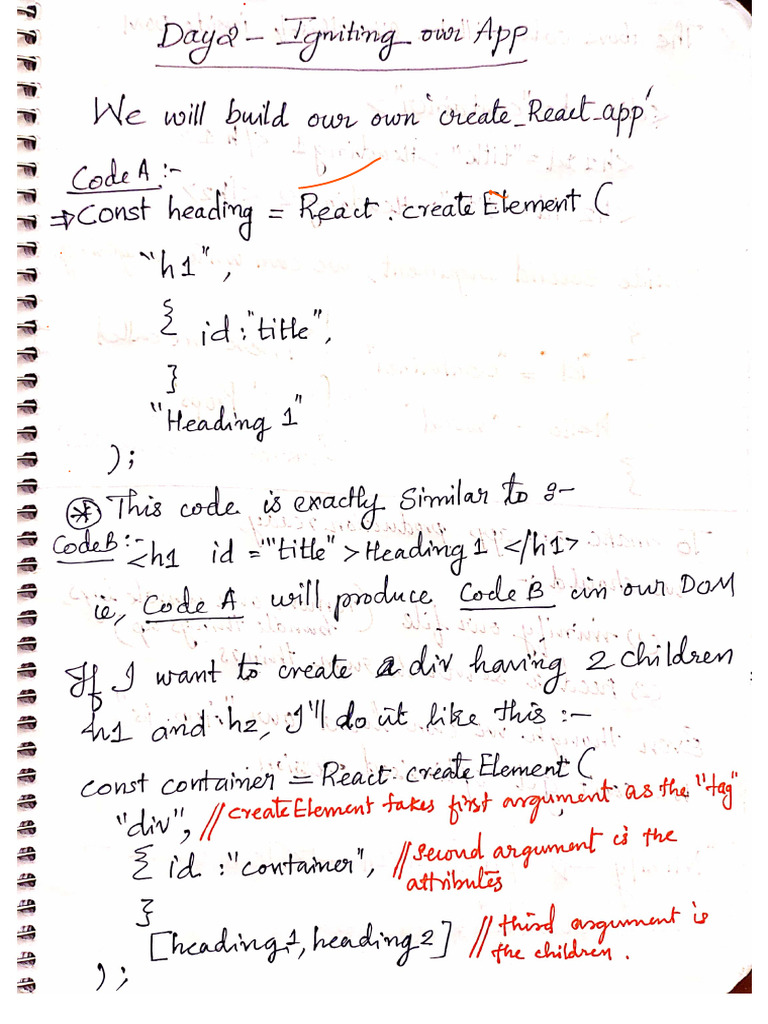 Day 2 - Igniting our App
We will build our own 'create_React_app'
Code A :-
⇒ Const heading = React.createElement (
"h1",
{ id: "title",
}
"Heading 1"
);
* This code is exactly Similar to :-
Code B :- <h1 id =""title" > Heading 1 </h1>
ie, Code A will produce Code B in our DOM
If I want to create a div having 2 children
h1 and h2, I'll do it like this :-
const container = React.createElement (
"div", //createElement takes first argument as the "tag"
{ id : "container", //second argument is the
attributes
}
[heading1, heading2] //third argument is
the children.
);